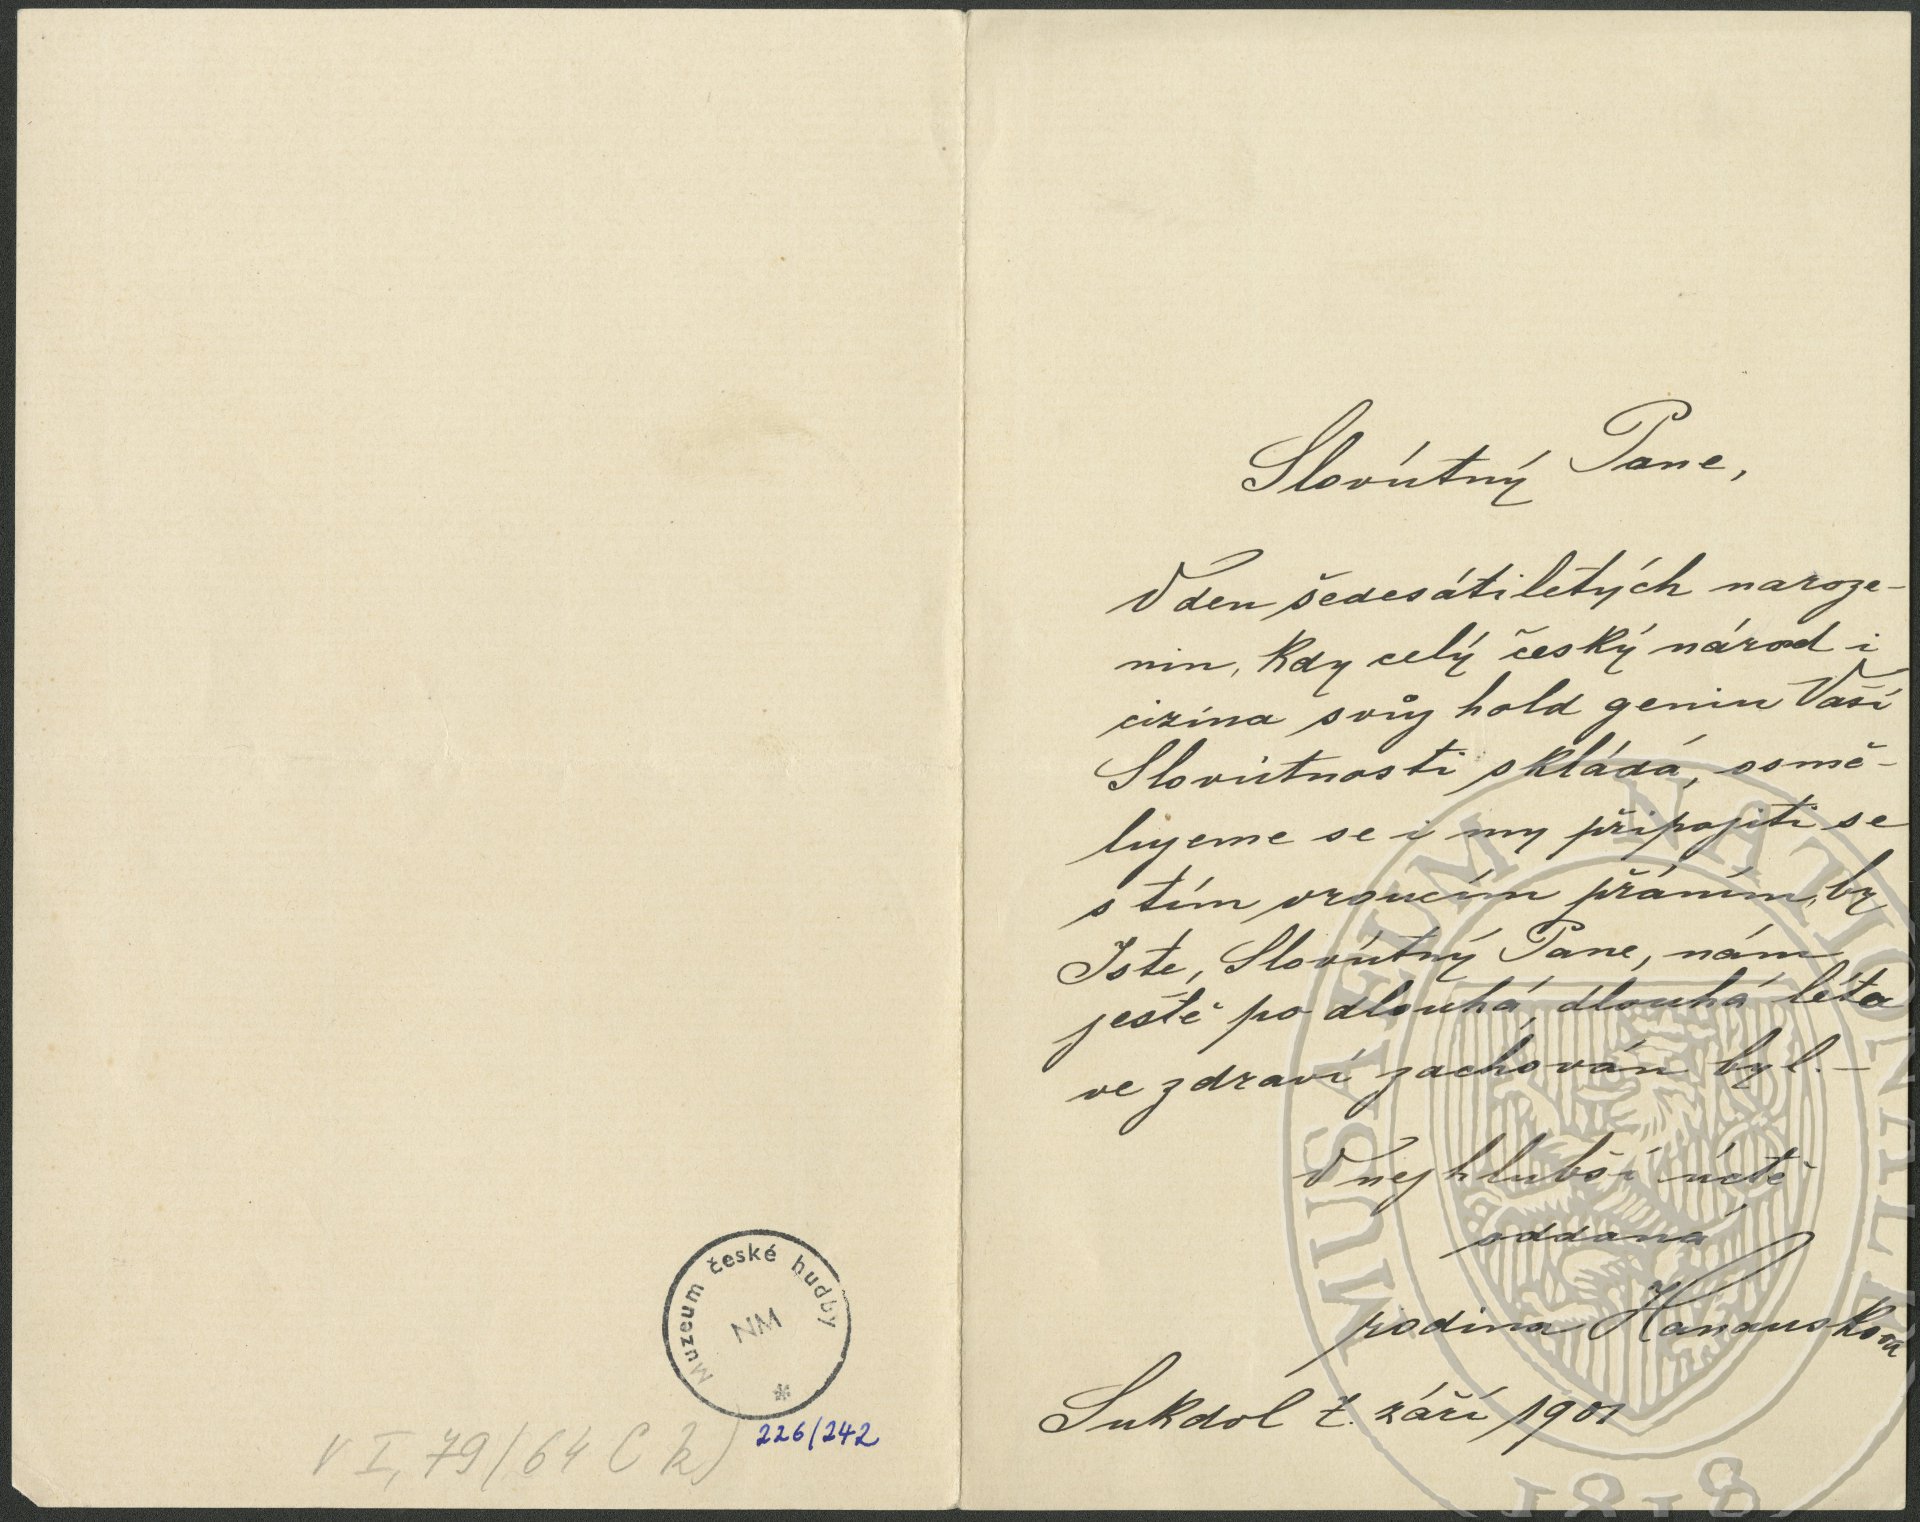 Muzeum české hudby
NM
*
226/242
V I, 79/64 C k)
Slovútný Pane,
V den šedesátiletých naroze-
nin, kdy celý český národ i
cizina svůj hold geniu Vaší
Slovútnosti skládá, osmě-
lujeme se i my připojiti se
s tím vroucím přáním, by
Jste, Slovútný Pane, nám
ještě po dlouhá, dlouhá léta
ve zdraví zachován byl. –
V nejhlubší úctě
oddaná
rodina Hanauskova
Sukdol 7. září 1901
MUSAEUM NATIONALE
1818